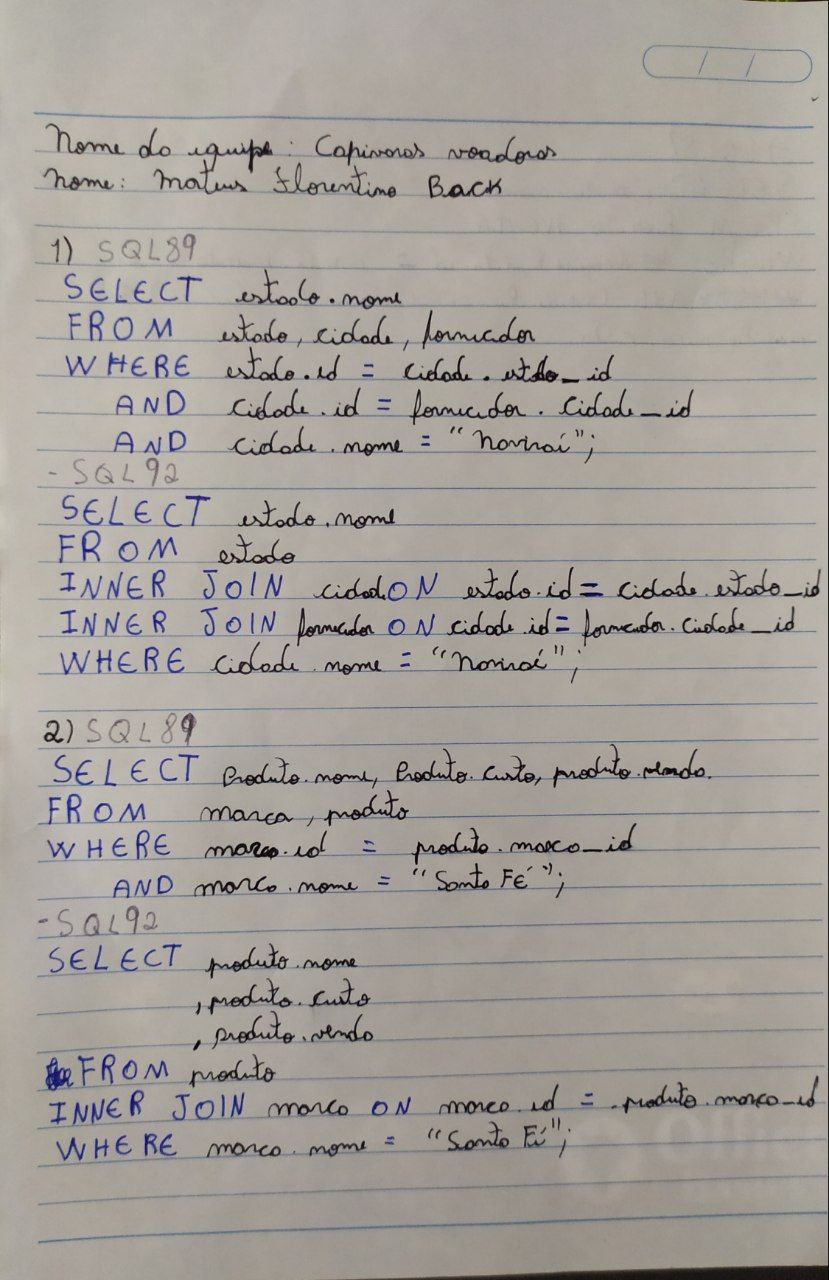 / /
Nome da equipe: Capivaras voadoras
Nome: Mateus Florentino Back
1) SQL89
SELECT estado.nome
FROM estado, cidade, fornecedor
WHERE estado.id = cidade.estdo_id
AND cidade.id = fornecedor.cidade_id
AND cidade.nome = "Naviraí";
- SQL92
SELECT estado.nome
FROM estado
INNER JOIN cidad.ON estado.id = cidade.estado_id
INNER JOIN fornecedor ON cidade.id = fornecedor.cidade_id
WHERE cidade.nome = "Naviraí";
2) SQL89
SELECT Produto.nome, Produto.custo, produto.venda.
FROM marca, produto
WHERE marca.id = produto.marca_id
AND marca.nome = "Santa Fé";
- SQL92
SELECT produto.nome
,produto.custo
,produto.venda
FROM produto
INNER JOIN marca ON marca.id = produto.marca_id
WHERE marca.nome = "Santa Fé";